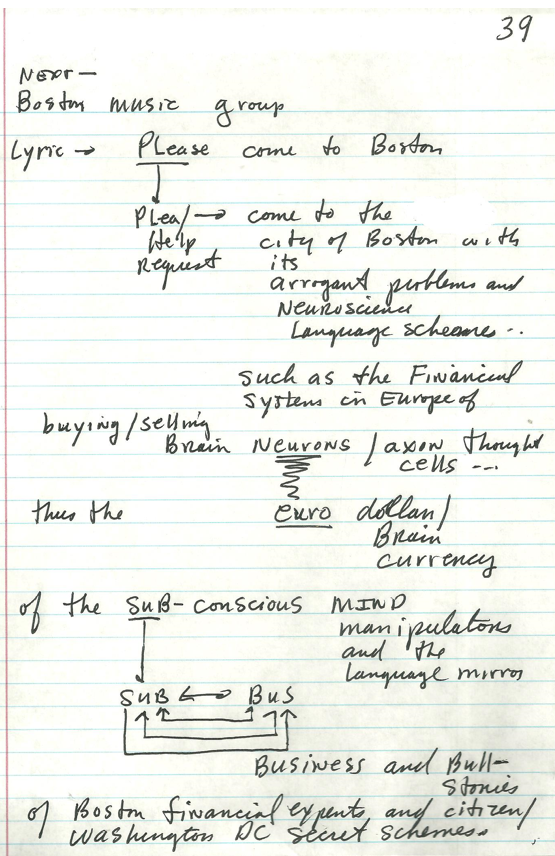 39
NEXT—
Boston music group
Lyric → PLease come to Boston
PLea/ → come to the
Help city of Boston with
Request its
arrogant problems and
Neuroscience
Language schemes ..
such as the Financial
Systems in Europe of
buying/selling
Brain NEURONS / axon thought
cells ---
thus the euro dollar/
Brain
currency
of the SUB-conscious MIND
manipulators
and the
Language mirros
SUB ↔ BUS
Business and Bull-
Stories
of Boston financial experts and citizen/
Washington DC secret schemes.